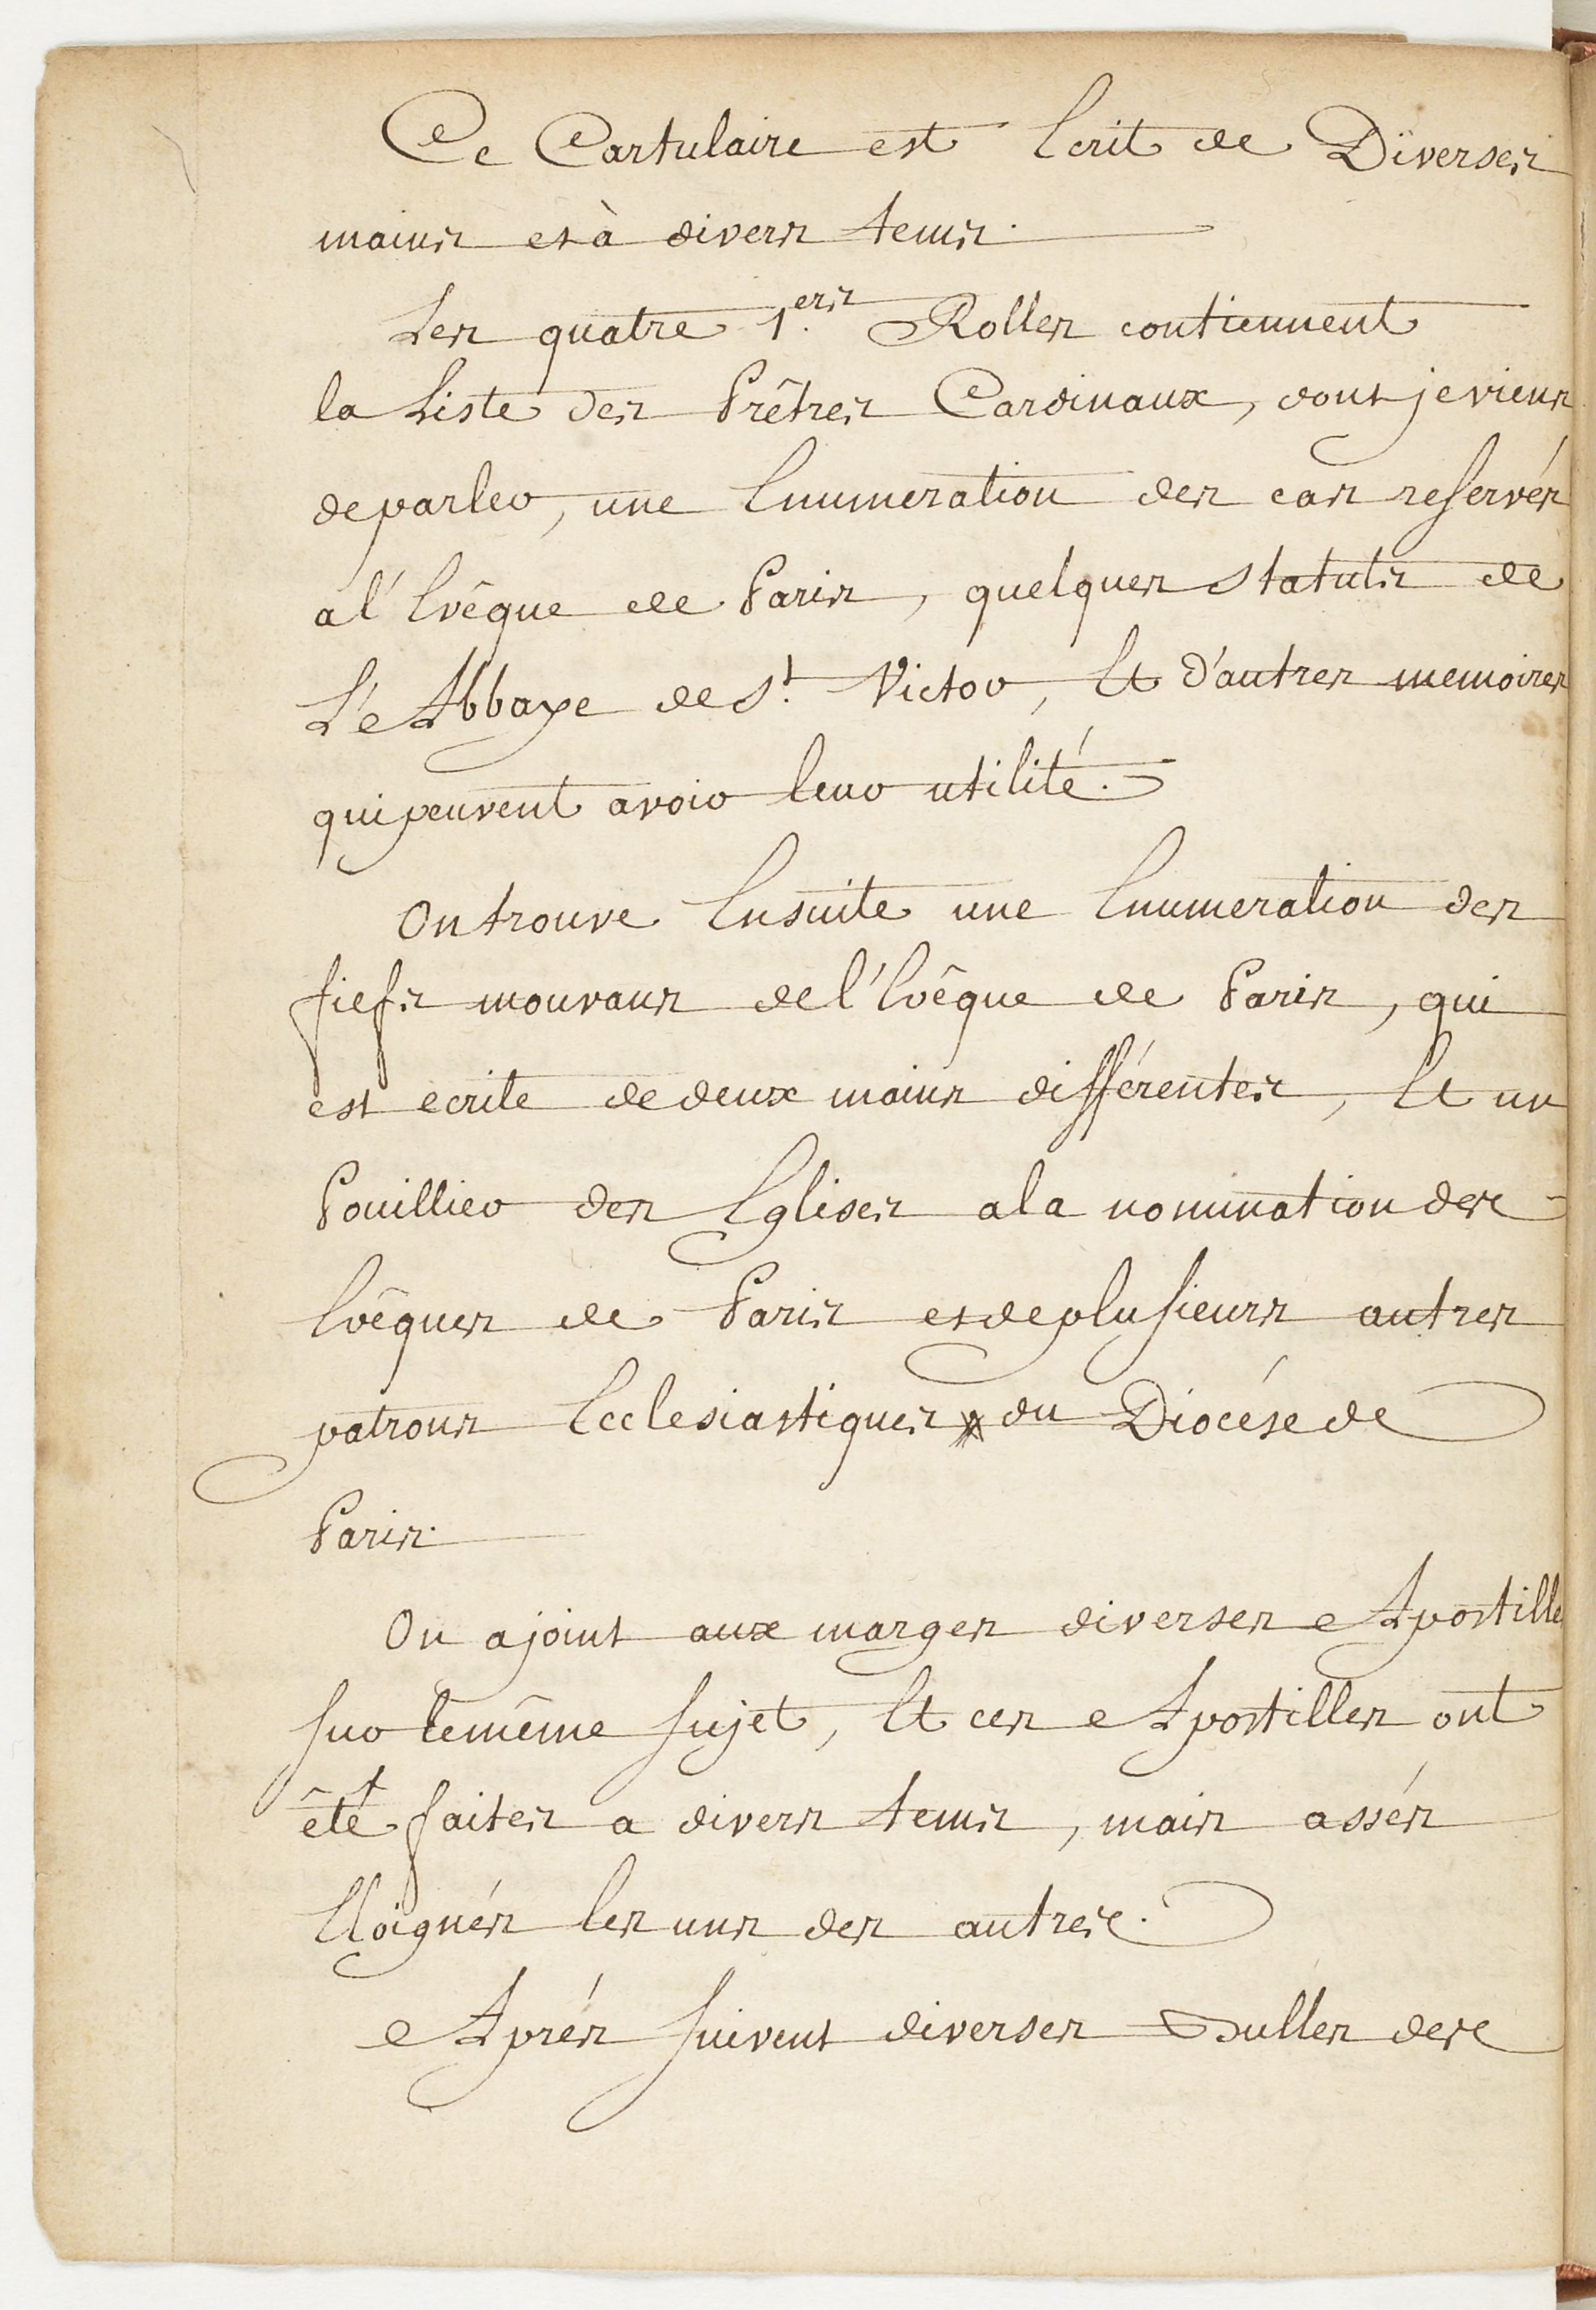 Ce Cartulaire est Ecrit de Diverses
mains et à divers tems.
Les quatre 1.ers Rolles contiennent
la Liste des Prêtres Cardinaux, dont je viens
de parler, une Enumeration des cas reservés
a l'Evêque de Paris, quelques statuts de
L'Abbaye de St. Victor, Et d'autres memoires
qui peuvent avoir leur utilité.
On trouve Ensuite une Enumeration des
fiefs mouvans de l'Evêque de Paris, qui
est ecrite de deux mains différentes, Et un
Pouillier des Eglises a la nomination des
Evêques de Paris et de plusieurs autres
patrons Ecclesiastiques du Diocése de
Paris.
On ajoint aux marges diverses Apostilles
sur le même sujet, Et ces Apostilles ont
êté faites a divers tems, mais assés
Eloignés les uns des autres.
Aprés suivent diverses Bulles des